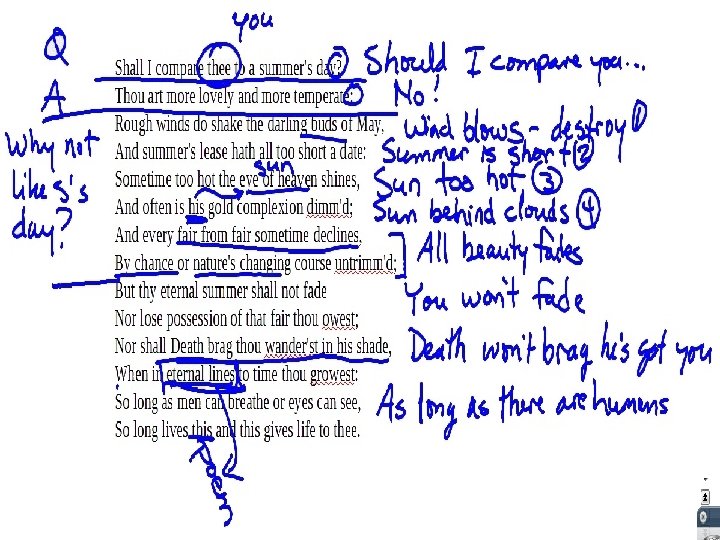 you
Q Shall I compare thee to a summer's day? Should I compare you...
A Thou art more lovely and more temperate: No!
Rough winds do shake the darling buds of May, Wind blows - destroy 1
Why not And summer's lease hath all too short a date: Summer is short 2
sun
like s's Sometime too hot the eye of heaven shines, Sun too hot 3
day? And often is his gold complexion dimm'd; Sun behind clouds 4
And every fair from fair sometime declines, All beauty fades
By chance or nature's changing course untrimm'd;
But thy eternal summer shall not fade You won't fade
Nor lose possession of that fair thou owest;
Nor shall Death brag thou wander'st in his shade, Death won't brag he's got you
When in eternal lines to time thou growest:
So long as men can breathe or eyes can see, As long as there are humans
So long lives this and this gives life to thee.
Poem